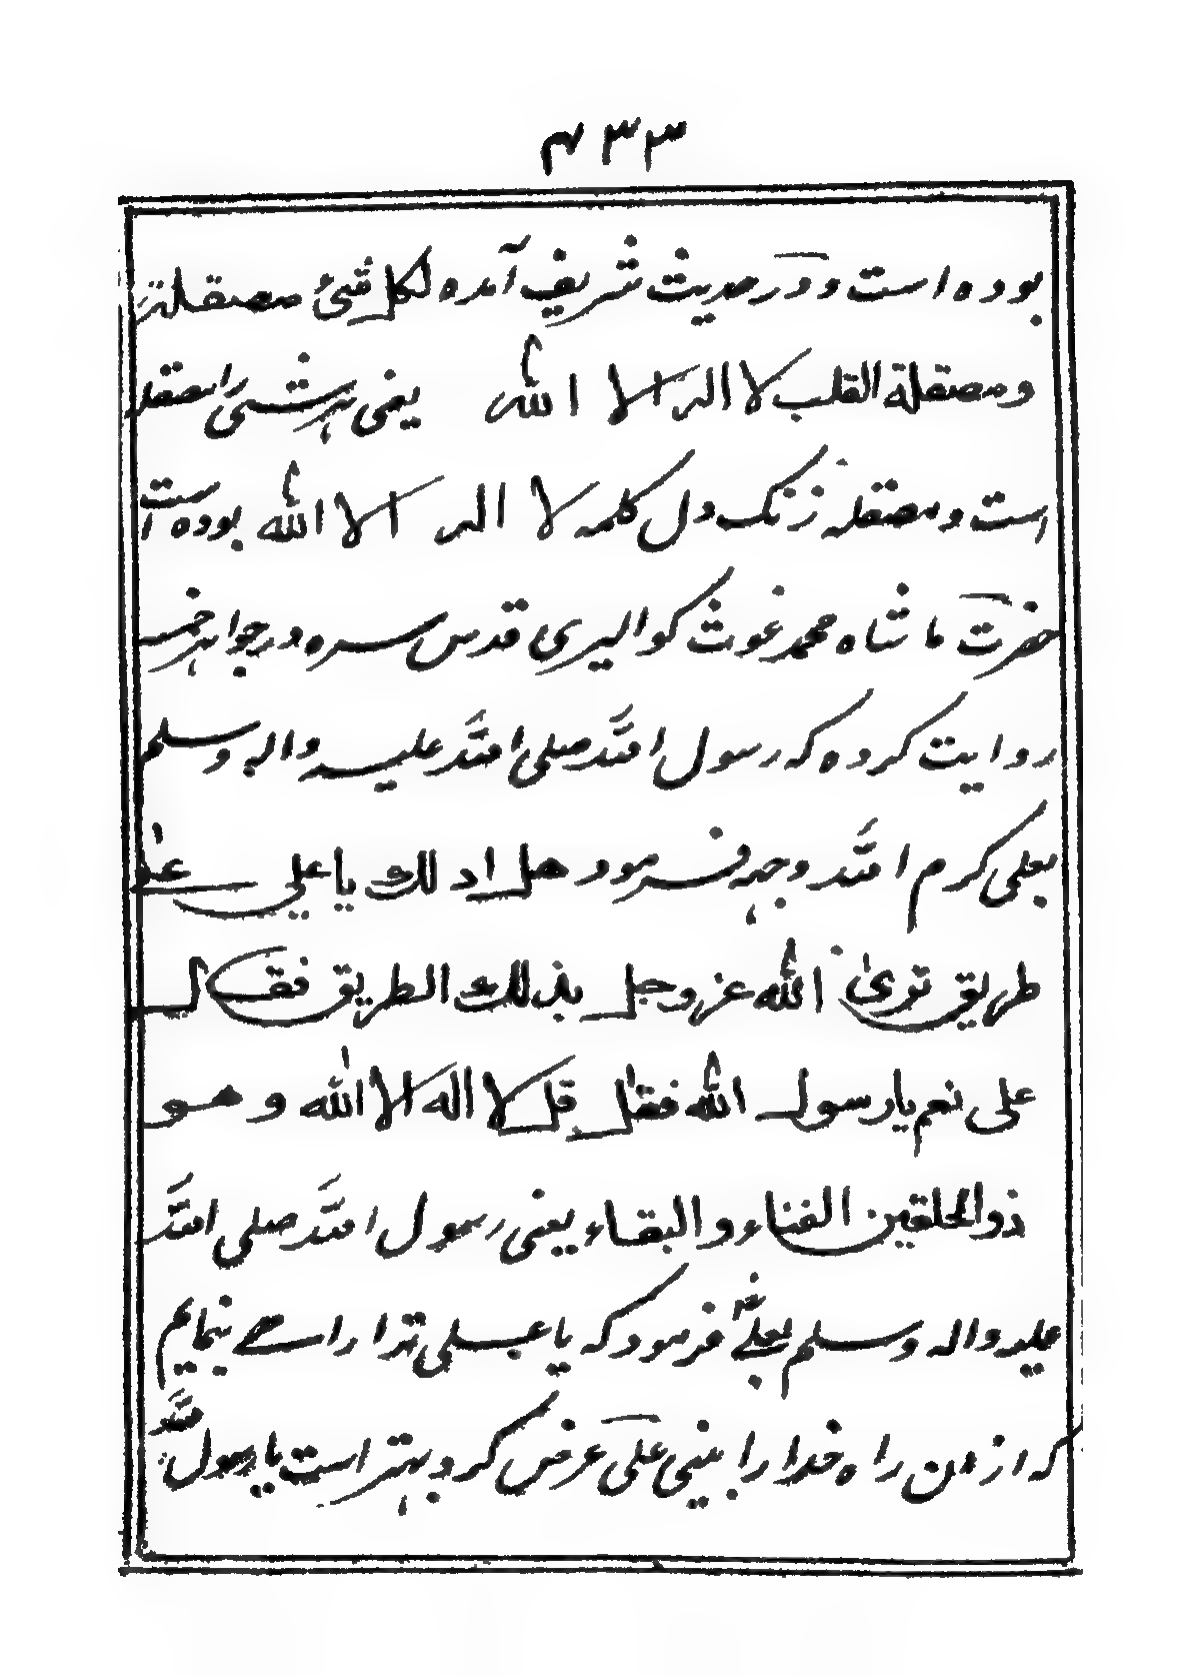 ۴۳۳
بوده است و در حدیث شریف آمده لکل شیٔ مصقلة
ومصقلة القلب لا اله الا الله یعنی هر شی را مصقله
است و مصقله زنگ دل کلمه لا اله الا الله بوده است
حضرت ما شاه محمد غوث کوالیری قدس سره در جواهر خمسه
روایت کرده که رسول الله صلی الله علیه واله وسلم
بعلی کرم الله وجهه فرمود هل ادلك یا علی علی
طریق تری الله عز وجل بذلك الطریق فقال
علی نعم یا رسول الله فقال قل لا اله الا الله و هو
ذو الحلقین الفناء والبقاء یعنی رسول الله صلی الله
علیه واله وسلم بعلی ؓ فرمود که یا علی ترا راهے بنمایم
که از من راه خدا را بینی علی عرض کرد بهتر است یا رسول الله